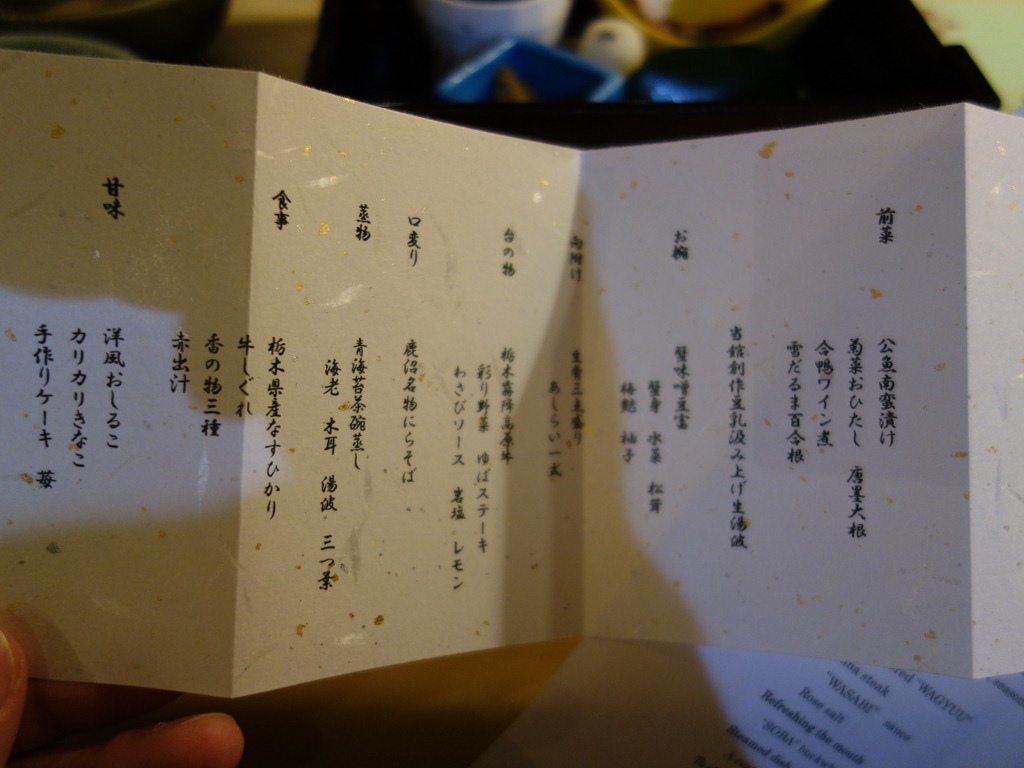 前菜
公魚南蛮漬け
菊菜おひたし 唐墨大根
合鴨ワイン煮
雪だるま百合根
当館創作豆乳汲み上げ生湯波
お椀
蟹味噌豆富
蟹身 水菜 松茸
梅麩 柚子
向附け
生膏三点盛り
あしらい一式
台の物
栃木霧降高原牛
彩り野菜 ゆばステーキ
わさびソース 岩塩 レモン
口変り
鹿沼名物にらそば
蒸物
青海苔茶碗蒸し
海老 木耳 湯波 三つ葉
食事
栃木県産なすひかり
牛しぐれ
香の物三種
赤出汁
甘味
洋風おしるこ
カリカリきなこ
手作りケーキ 苺
steak
"WAGYUU"
"WASABI" sauce
Rose salt
Refreshing the mouth
"SOBA"
Steamed